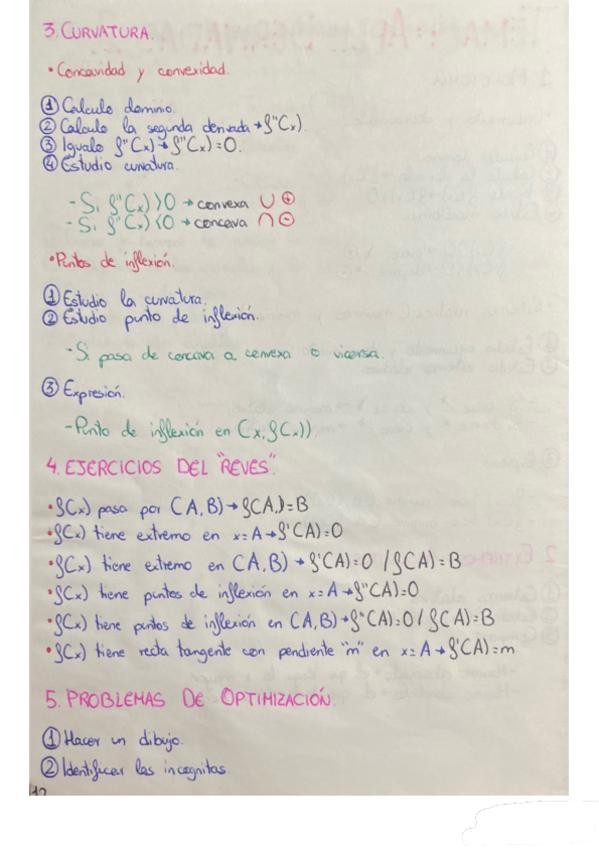 3. CURVATURA.
• Concavidad y convexidad.
① Calculo dominio.
② Calculo la segunda derivada → f''(x).
③ Igualo f''(x) → f''(x) = 0.
④ Estudio curvatura.
- Si f''(x) > 0 → convexa ∪ ⊕
- Si f''(x) < 0 → concava ∩ ⊖
• Puntos de inflexión.
① Estudio la curvatura.
② Estudio punto de inflexión.
- Si pasa de concava a convexa o vicersa.
③ Expresión.
- Punto de inflexión en (x, f(x)).
4. EJERCICIOS DEL "REVES".
• f(x) pasa por (A, B) → f(A) = B
• f(x) tiene extremo en x = A → f'(A) = 0
• f(x) tiene extremo en (A, B) → f'(A) = 0 / f(A) = B
• f(x) tiene puntos de inflexión en x = A → f''(A) = 0
• f(x) tiene puntos de inflexión en (A, B) → f''(A) = 0 / f(A) = B
• f(x) tiene recta tangente con pendiente "m" en x = A → f'(A) = m
5. PROBLEMAS DE OPTIMIZACIÓN.
① Hacer un dibujo.
② Identificar las incognitas.